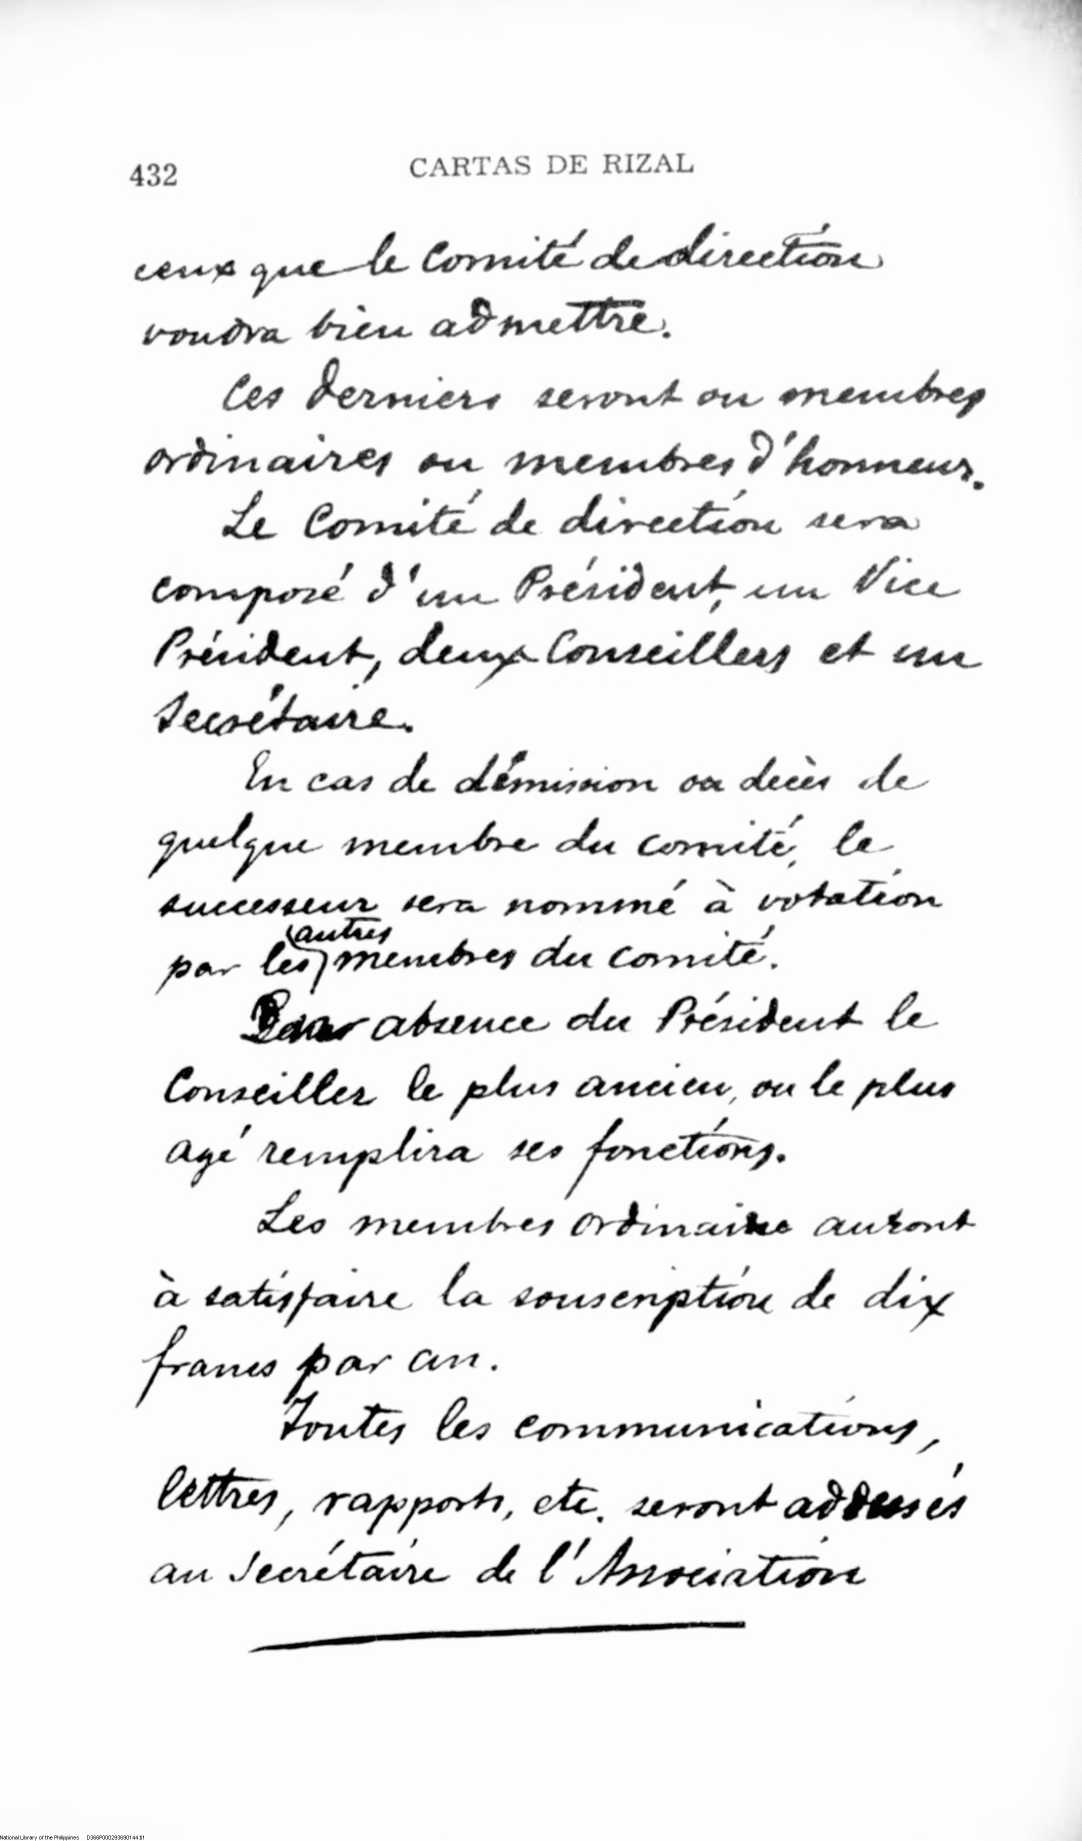 432
CARTAS DE RIZAL
ceux que le Comité de direction
voudra bien admettre.
Ces derniers seront ou membres
ordinaires ou membres d'honneur.
Le Comité de direction sera
composé d'un Président, un Vice
Président, deux Conseillers et un
Secrétaire.
En cas de démission ou decès de
quelque membre du comité, le
successeur sera nommé à votation
autres
par les membres du comité.
absence du Président le
Conseiller le plus ancien, ou le plus
agé remplira ses fonctions.
Les membres ordinaires auront
à satisfaire la souscription de dix
francs par an.
Toutes les communications,
lettres, rapports, etc. seront addressés
au Secrétaire de l'Association
National Library of the Philippines